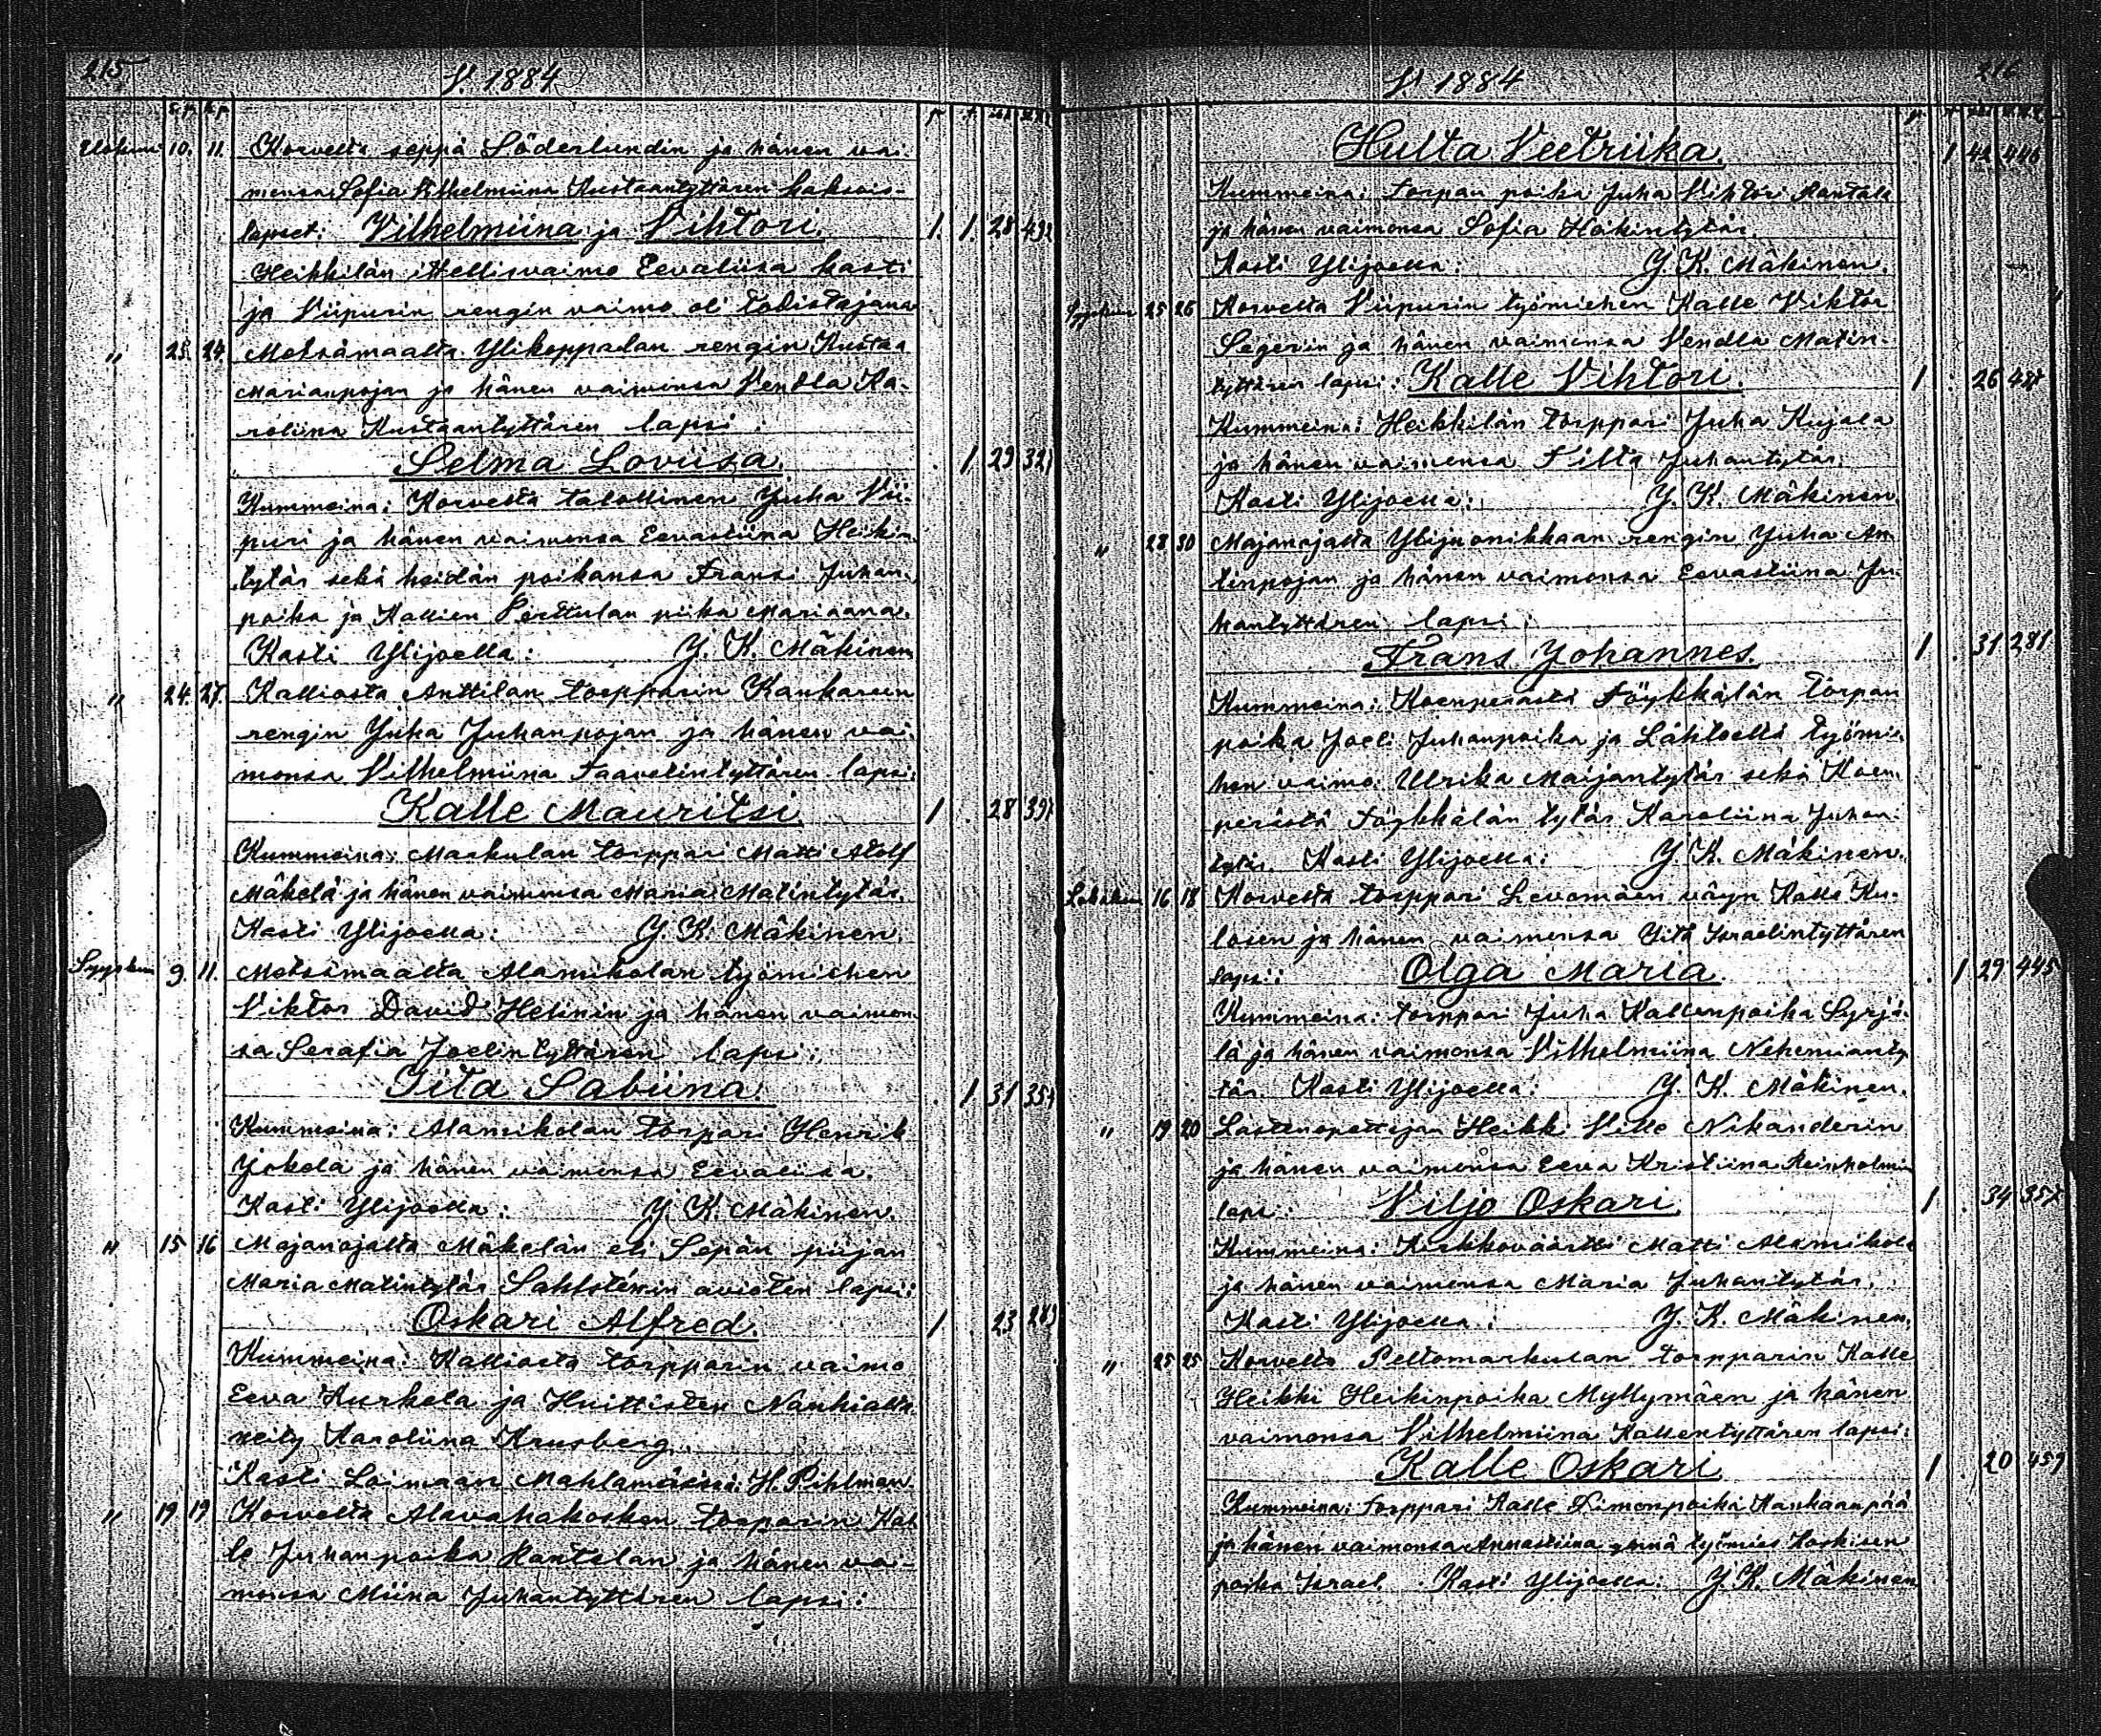 215
V. 1884
s.p. k.p.
Elokuu 10. 11. Korvelta seppä Söderlundin ja hänen vai-
monsa Sofia Vilhelmiina Kustaantyttären kaksois-
lapset: Vilhelmiina ja Vihtori. 1. 1. 28
Heikkilän itsellisvaimo Eevaliisa kasti
ja Viipurin rengin vaimo oli todistajana
" 23. 24. Metsämaalta Ylikoppalan rengin Kustaa
Marianpojan ja hänen vaimonsa Vendla Ka-
roliina Kustaantyttären lapsi:
Selma Loviisa. 1 29 327
Kummeina: Korvelta talollinen Juha Vii-
puri ja hänen vaimonsa Eevastiina Heikin-
tytär sekä heidän poikansa Fransi Juhan-
poika ja Kallion Perttulan piika Mariaana.
Kasti Ylijoella: Y. K. Mäkinen
" 24. 27. Kalliosta Anttilan torpparin Kankareen
rengin Juha Juhanpojan ja hänen vai-
monsa Vilhelmiina Taavetintyttären lapsi:
Kalle Mauritsi. 1 28 397
Kummeina: Markulan torppari Matti Adolf
Mäkelä ja hänen vaimonsa Maria Matintytär.
Kasti Ylijoella: Y. K. Mäkinen.
Syyskuu 9. 11. Metsämaalta Alamikolan työmiehen
Viktor David Helinin ja hänen vaimon-
sa Serafia Joelintyttären lapsi:
Iita Sabiina. 1 31 357
Kummeina: Alamikolan torpari Henrik
Jokela ja hänen vaimonsa Eevaliisa.
Kasti Ylijoella: Y. K. Mäkinen.
" 15 16 Majanojalta Mäkelän eli Sepän piijan
Maria Matintytär Sahlsténin avioton lapsi:
Oskari Alfred. 1 23 283
Kummeina: Kalliosta torpparin vaimo
Eeva Kurkela ja Huittisten Nanhialta
neity Karoliina Krusberg.
Kasti Loimaan Mahlamäessä: H. Pihlman.
" 19 19 Korvelta Alavahakosken torparin Kal-
le Juhanpoika Rantalan ja hänen vai-
monsa Miina Juhantyttären lapsi:
216
V. 1884
Hulta Veetriika. 1 42 446
Kummeina: Torpan poika Juha Vihtori Rantala
ja hänen vaimonsa Sofia Heikintytär.
Kasti Ylijoella: Y. K. Mäkinen.
Syyskuu 25 26 Korvelta Viipurin työmiehen Kalle Viktor
Segerin ja hänen vaimonsa Vendla Matin-
tyttären lapsi: Kalle Vihtori. 1 26
Kummeina: Heikkilän torppari Juha Kujala
ja hänen vaimonsa Tilta Juhantytär.
Kasti Ylijoella: Y. K. Mäkinen.
" 28 30 Majanojalta Ylijuonikkaan rengin Juha An-
tinpojan ja hänen vaimonsa Eevastiina Ju-
hantyttären lapsi:
Frans Johannes. 1 31 281
Kummeina: Koenperästä Töykkälän torpan
poika Joeli Juhanpoika ja Lähteeltä työmie-
hen vaimo Ulrika Maijantytär sekä Koen-
perästä Töykkälän tytär Karoliina Juhan-
tytär. Kasti Ylijoella: Y. K. Mäkinen.
Lokakuu 16 18 Korvelta torppari Levomäen väyn Kalle Ku-
losen ja hänen vaimonsa Iita Israelintyttären
lapsi: Olga Maria. 1 29 445
Kummeina: torppari Juha Kallenpoika Syrjä-
lä ja hänen vaimonsa Vilhelmiina Nehemianty-
tär. Kasti Ylijoella: Y. K. Mäkinen.
" 19 20 Lastenopettajan Heikki Ville Nikanderin
ja hänen vaimonsa Eeva Kristiina Reinholmin
lapsi: Viljo Oskari. 1 34 357
Kummeina: Kirkkoväärtti Matti Alamikola
ja hänen vaimonsa Maria Juhantytär.
Kasti Ylijoella: Y. K. Mäkinen.
" 25 25 Korvelta Peltomarkulan torpparin Kalle
Heikki Heikinpoika Myllymäen ja hänen
vaimonsa Vilhelmiina Kallentyttären lapsi:
Kalle Oskari. 1 20 459
Kummeina: torppari Kalle Simonpoika Kankaanpää
ja hänen vaimonsa Annastiina ynnä työmies Koskisen
poika Israel. Kasti Ylijoella: Y. K. Mäkinen